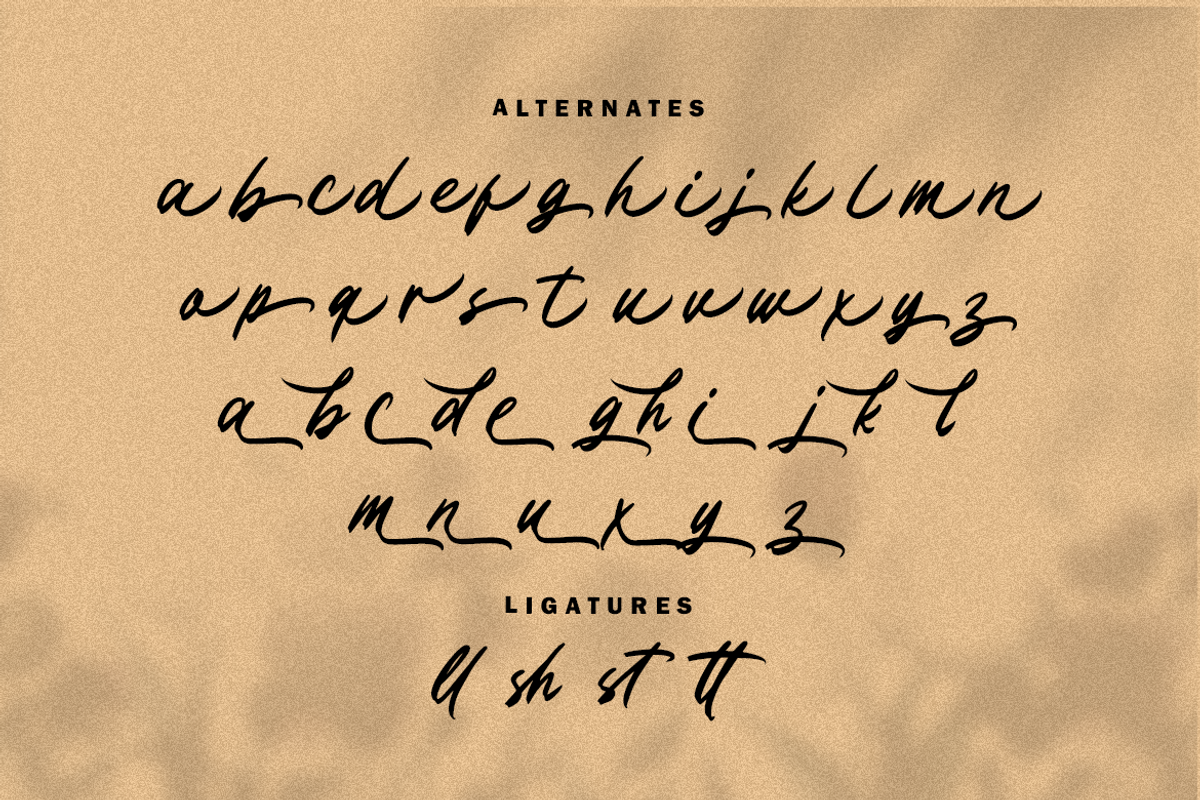 ALTERNATES
a b c d e f g h i j k l m n
o p q r s t u v w x y z
a b c d e g h i j k l
m n u x y z
LIGATURES
ll sh st tt